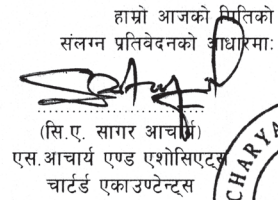 हाम्रो आजको मितिको
संलग्न प्रतिवेदनको आधारमा:
(सि.ए. सागर आचार्य)
एस.आचार्य एण्ड एशोसिएट्स
चार्टर्ड एकाउण्टेन्ट्स
CHARYA